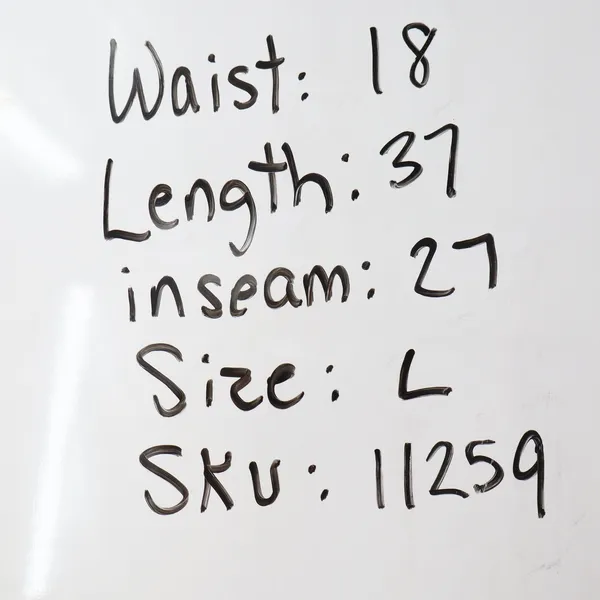 Waist: 18
Length: 37
inseam: 27
Size: L
SKU: 11259